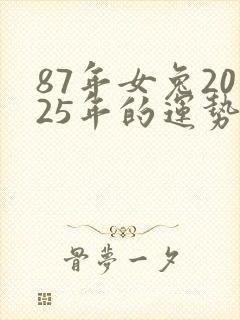 87年女兔20
25年的運勢
骨夢一夕